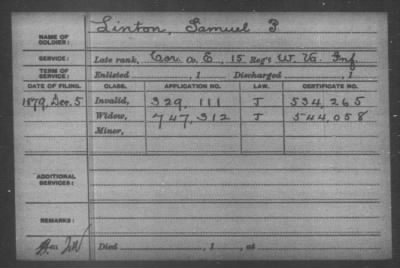 NAME OF SOLDIER: Linton, Samuel P
SERVICE: Late rank, Cor. Co. E, 15 Reg't W. Va. Inf.
TERM OF SERVICE: Enlisted , 1 Discharged , 1
DATE OF FILING. CLASS. APPLICATION NO. LAW. CERTIFICATE NO.
1879, Dec. 5 Invalid, 329, 111 J 534, 265
Widow, 747, 312 J 544, 058
Minor,
ADDITIONAL SERVICES:
REMARKS:
Died , 1 , at